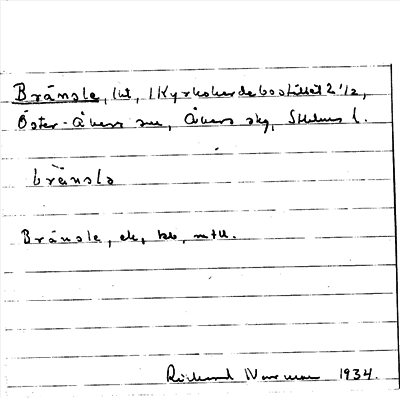 Bränsle, lht, i Kyrkoherdebostället 2 1/2,
Öster-Åkers sn, Åkers skg, Sthlms l.
bränslə
Bränsle, 
Rickard 1934.